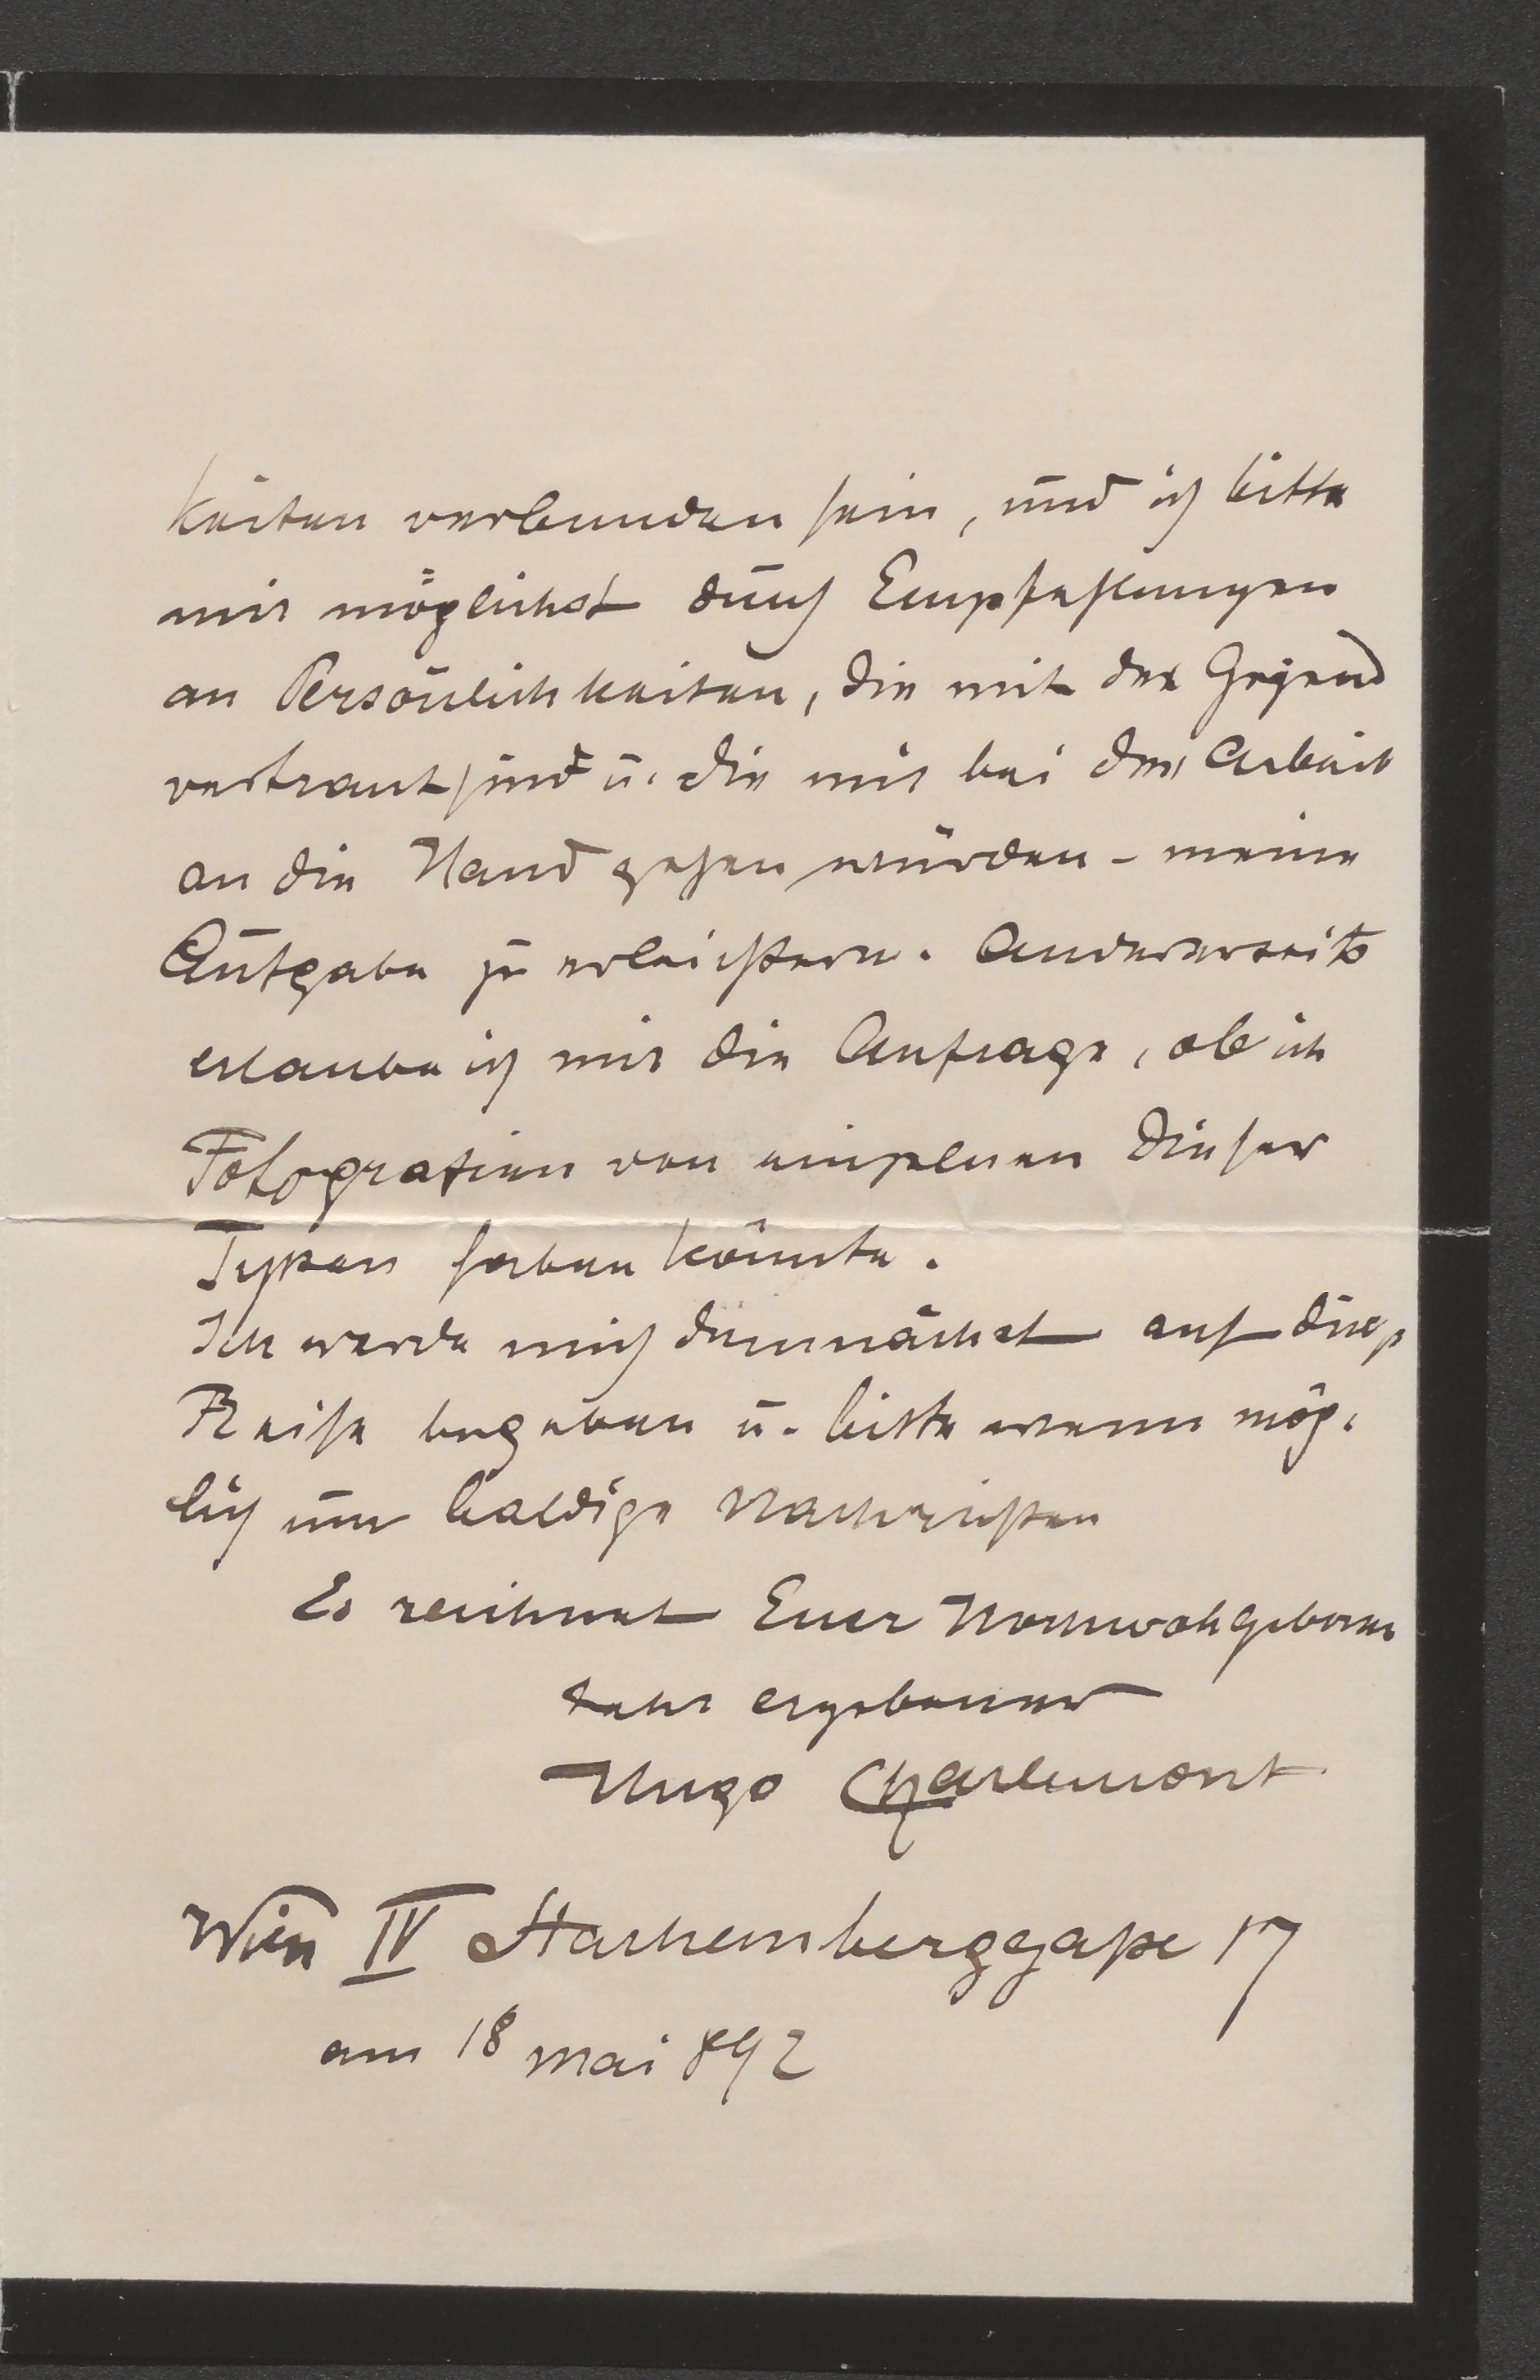 keiten verbunden sein, und ich bitte
mir möglichst durch Empfehlungen
an Persönlichkeiten, die mit der Gegend
vertraut sind u. die mir bei der Arbeit
an die Hand gehen würden - meine
Aufgabe zu erleichtern. Andererseits
erlaube ich mir die Anfrage, ob ich
Fotografien von einzelnen dieser
Typen haben könnte.
Ich werde mich demnächst auf diese
Reise begeben u. bitte wenn mög-
lich um baldige Nachrichten
Es zeichnet Euer Hochwohlgeboren
sehr ergebener
Hugo Charlemont
Wien IV Starhemberggasse 17
am 18 Mai 892